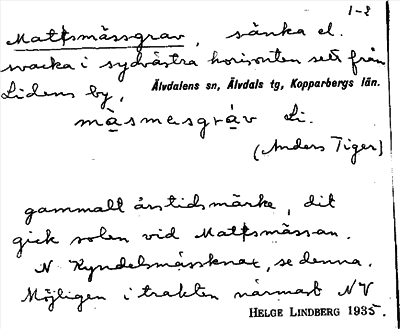 1-2
Mattsmässgrav, sänka el.
svacka i sydvästra horisonten sett från
Lidens by,
Älvdalens sn, Älvdals tg, Kopparbergs län.
màsmesgràv Li.
(Anders Tiger)
gammalt årstidsmärke, dit
gick solen vid Mattsmässan.
N Kyndelsmässknat, se denna.
Möjligen i trakten närmast NV
HELGE LINDBERG 1935.